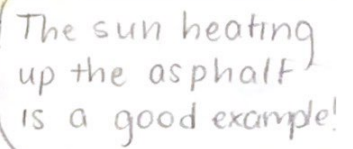 The sun heating
up the asphalt
is a good example!